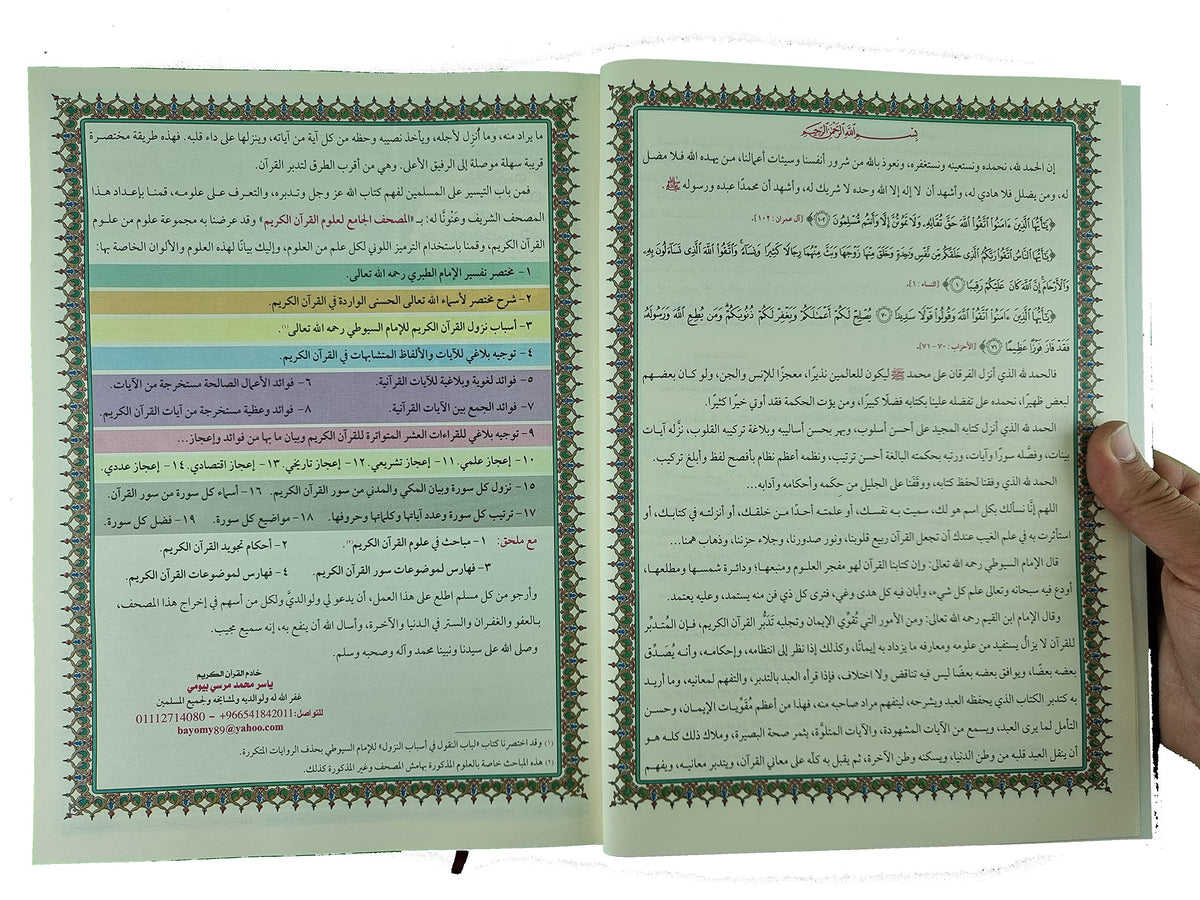 بِسْمِ اللَّهِ الرَّحْمَنِ الرَّحِيمِ
إن الحمد لله، نحمده ونستعينه ونستغفره، ونعوذ بالله من شرور أنفسنا وسيئات أعمالنا، من يهده الله فلا مضل
له، ومن يضلل فلا هادي له، وأشهد أن لا إله إلا الله وحده لا شريك له، وأشهد أن محمدًا عبده ورسوله ﷺ.
﴿يَٰٓأَيُّهَا ٱلَّذِينَ ءَامَنُوا۟ ٱتَّقُوا۟ ٱللَّهَ حَقَّ تُقَاتِهِۦ وَلَا تَمُوتُنَّ إِلَّا وَأَنتُم مُّسْلِمُونَ ١٠٢﴾ [آل عمران: ١٠٢].
﴿يَٰٓأَيُّهَا ٱلنَّاسُ ٱتَّقُوا۟ رَبَّكُمُ ٱلَّذِى خَلَقَكُم مِّن نَّفْسٍ وَٰحِدَةٍ وَخَلَقَ مِنْهَا زَوْجَهَا وَبَثَّ مِنْهُمَا رِجَالًا كَثِيرًا وَنِسَآءً وَٱتَّقُوا۟ ٱللَّهَ ٱلَّذِى تَسَآءَلُونَ بِهِۦ
وَٱلْأَرْحَامَ إِنَّ ٱللَّهَ كَانَ عَلَيْكُمْ رَقِيبًا ١﴾ [النساء: ١].
﴿يَٰٓأَيُّهَا ٱلَّذِينَ ءَامَنُوا۟ ٱتَّقُوا۟ ٱللَّهَ وَقُولُوا۟ قَوْلًا سَدِيدًا ٧٠ يُصْلِحْ لَكُمْ أَعْمَٰلَكُمْ وَيَغْفِرْ لَكُمْ ذُنُوبَكُمْ وَمَن يُطِعِ ٱللَّهَ وَرَسُولَهُۥ
فَقَدْ فَازَ فَوْزًا عَظِيمًا ٧١﴾ [الأحزاب: ٧٠ - ٧١].
فالحمد لله الذي أنزل الفرقان على محمد ﷺ ليكون للعالمين نذيرًا، معجزًا للإنس والجن، ولو كان بعضهم
لبعض ظهيرًا، نحمده على تفضله علينا بكتابه فضلًا كبيرًا، ومن يؤت الحكمة فقد أوتي خيرًا كثيرًا.
الحمد لله الذي أنزل كتابه المجيد على أحسن أسلوب، وبهر بحسن أساليبه وبلاغة تركيبه القلوب، نزَّله آيات
بينات، وفصَّله سورًا وآيات، ورتبه بحكمته البالغة أحسن ترتيب، ونظمه أعظم نظام بأفصح لفظ وأبلغ تركيب.
الحمد لله الذي وفقنا لحفظ كتابه، ووقَفَنا على الجليل من حِكمه وأحكامه وآدابه...
اللهم إنَّا نسألك بكل اسم هو لك، سميت به نفسك، أو علمته أحدًا من خلقك، أو أنزلته في كتابك، أو
استأثرت به في علم الغيب عندك أن تجعل القرآن ربيع قلوبنا، ونور صدورنا، وجلاء حزننا، وذهاب همنا...
قال الإمام السيوطي رحمه الله تعالى: وإن كتابنا القرآن لهو مفجر العلوم ومنبعها؛ ودائرة شمسها ومطلعها،
أودع فيه سبحانه وتعالى علم كل شيء، وأبان فيه كل هدى وغي، فترى كل ذي فن منه يستمد، وعليه يعتمد.
وقال الإمام ابن القيم رحمه الله تعالى: ومن الأمور التي تُقوِّي الإيمان وتجلبه تَدَبُّر القرآن الكريم، فإن المُتدبِّر
للقرآن لا يزالُ يستفيد من علومه ومعارفه ما يزداد به إيمانًا، وكذلك إذا نظر إلى انتظامه، وإحكامه، وأنه يُصَدِّق
بعضه بعضًا، ويوافق بعضه بعضًا ليس فيه تناقض ولا اختلاف، فإذا قرأه العبد بالتدبر، والتفهم لمعانيه، وما أريد
به كتدبر الكتاب الذي يحفظه العبد ويشرحه، ليتفهم مراد صاحبه منه، فهذا من أعظم مُقَوِّيات الإيمان، وحسن
التأمل لما يرى العبد، ويسمع من الآيات المشهودة، والآيات المتلوَّة، يثمر صحة البصيرة، وملاك ذلك كله هو
أن ينقل العبد قلبه من وطن الدنيا، ويسكنه وطن الآخرة، ثم يقبل به كلِّه على معاني القرآن، ويتدبر معانيه، ويفهم
ما يراد منه، وما أُنزل لأجله، ويأخذ نصيبه وحظه من كل آية من آياته، وينزلها على داء قلبه. فهذه طريقة مختصرة
قريبة سهلة موصلة إلى الرفيق الأعلى. وهي من أقرب الطرق لتدبر القرآن.
فمن باب التيسير على المسلمين لفهم كتاب الله عز وجل وتدبره، والتعرف على علومه، قمنا بإعداد هذا
المصحف الشريف وعَنْونَّا له: بـ «المصحف الجامع لعلوم القرآن الكريم» وقد عرضنا به مجموعة علوم من علوم
القرآن الكريم، وقمنا باستخدام الترميز اللوني لكل علم من العلوم، وإليك بيانًا لهذه العلوم والألوان الخاصة بها:
١- مختصر تفسير الإمام الطبري رحمه الله تعالى.
٢- شرح مختصر لأسماء الله تعالى الحسنى الواردة في القرآن الكريم.
٣- أسباب نزول القرآن الكريم للإمام السيوطي رحمه الله تعالى(١).
٤- توجيه بلاغي للآيات والألفاظ المتشابهات في القرآن الكريم.
٥- فوائد لغوية وبلاغية للآيات القرآنية. ٦- فوائد الأعمال الصالحة مستخرجة من الآيات.
٧- فوائد الجمع بين الآيات القرآنية. ٨- فوائد وعظية مستخرجة من آيات القرآن الكريم.
٩- توجيه بلاغي للقراءات العشر المتواترة للقرآن الكريم وبيان ما بها من فوائد وإعجاز...
١٠- إعجاز علمي. ١١- إعجاز تشريعي. ١٢- إعجاز تاريخي. ١٣- إعجاز اقتصادي. ١٤- إعجاز عددي.
١٥- نزول كل سورة وبيان المكي والمدني من سور القرآن الكريم. ١٦- أسماء كل سورة من سور القرآن.
١٧- ترتيب كل سورة وعدد آياتها وكلماتها وحروفها. ١٨- مواضيع كل سورة. ١٩- فضل كل سورة.
مع ملحق: ١- مباحث في علوم القرآن الكريم(٢). ٢- أحكام تجويد القرآن الكريم.
٣- فهارس لموضوعات سور القرآن الكريم. ٤- فهارس لموضوعات القرآن الكريم.
وأرجو من كل مسلم اطلع على هذا العمل، أن يدعو لي ولوالديَّ ولكل من أسهم في إخراج هذا المصحف،
بالعفو والغفران والستر في الدنيا والآخرة، وأسال الله أن ينفع به، إنه سميع مجيب.
وصل الله على سيدنا ونبينا محمد وآله وصحبه وسلم.
خادم القرآن الكريم
ياسر محمد مرسي بيومي
غفر الله له ولوالديه ولمشايخه ولجميع المسلمين
للتواصل: 966541842011+ – 01112714080
bayomy89@yahoo.com
(١) وقد اختصرنا كتاب «لباب النقول في أسباب النزول» للإمام السيوطي بحذف الروايات المتكررة.
(٢) هذه المباحث خاصة بالعلوم المذكورة بهامش المصحف وغير المذكورة كذلك.